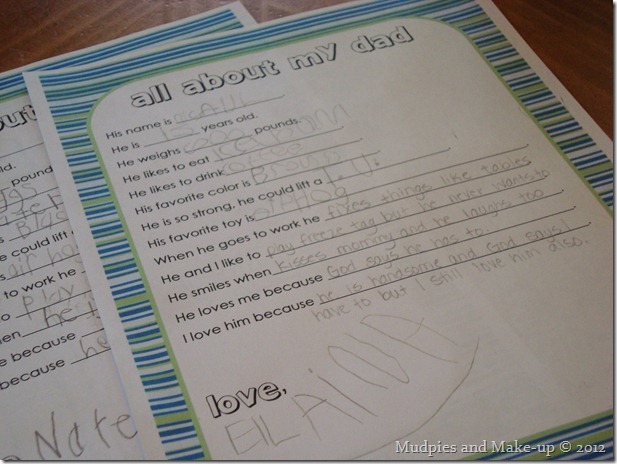 all about my dad
His name is
He is years old.
He weighs pounds.
He likes to eat
He likes to drink coffee
His favorite color is Brown
He is so strong, he could lift a T.V.
His favorite toy is airHog
When he goes to work he fixes things like tables
He and I like to play freeze tag but he never wants to
He smiles when kisses mommy and he laughs too
He loves me because God says he has to.
I love him because he is handsome and God says I
have to but I still love him also.
love,
ElLAiNA
out
old.
pounds
could lift
to work he
Play
because
because
Nate
Mudpies and Make-up © 2012